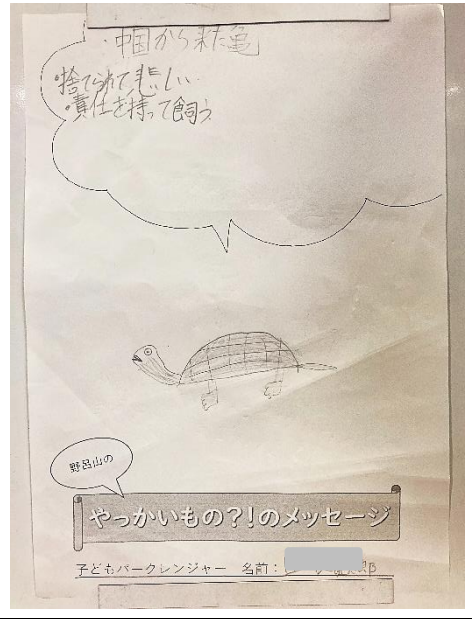 ・中国から来た亀
・捨てられて悲しい
・責任を持って飼う
野呂山の
やっかいもの?!のメッセージ
子どもパークレンジャー 名前: